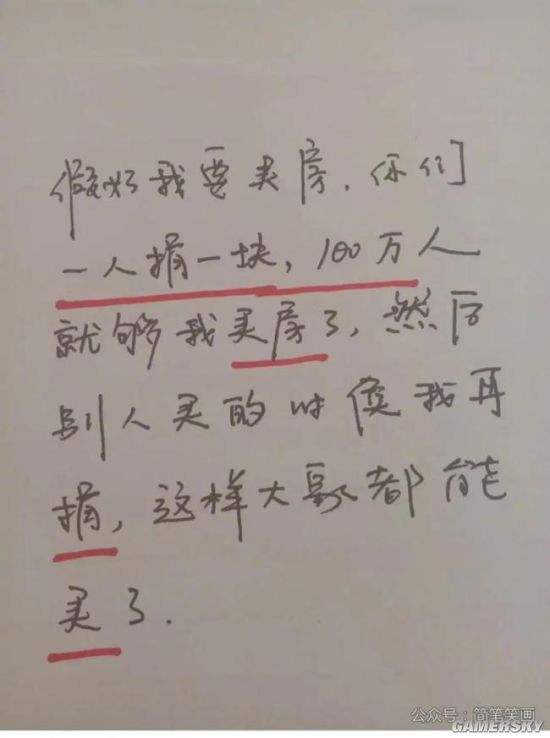 假如我要买房，你们
一人捐一块，100万人
就够我买房了，然后
别人买的时候我再
捐，这样大家都能
买了.
公众号：简笔笑画
GAMERSKY